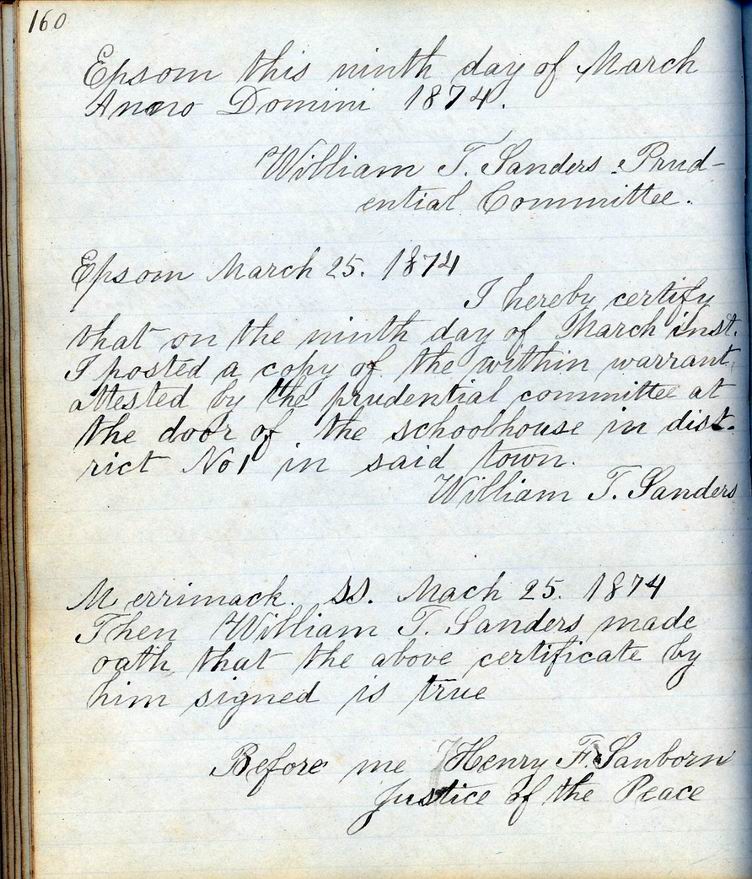 160
Epsom this ninth day of March
Anno Domini 1874.
William T. Sanders Prud-
ential Committee.
Epsom March 25. 1874
I hereby certify
that on the ninth day of March inst.
I posted a copy of the within warrant,
attested by the prudential committee at
the door of the schoolhouse in dist-
rict No 1 in said town.
William T. Sanders
Merrimack. SS. Mach 25. 1874
Then William T. Sanders made
oath that the above certificate by
him signed is true
Before me Henry F. Sanborn
Justice of the Peace